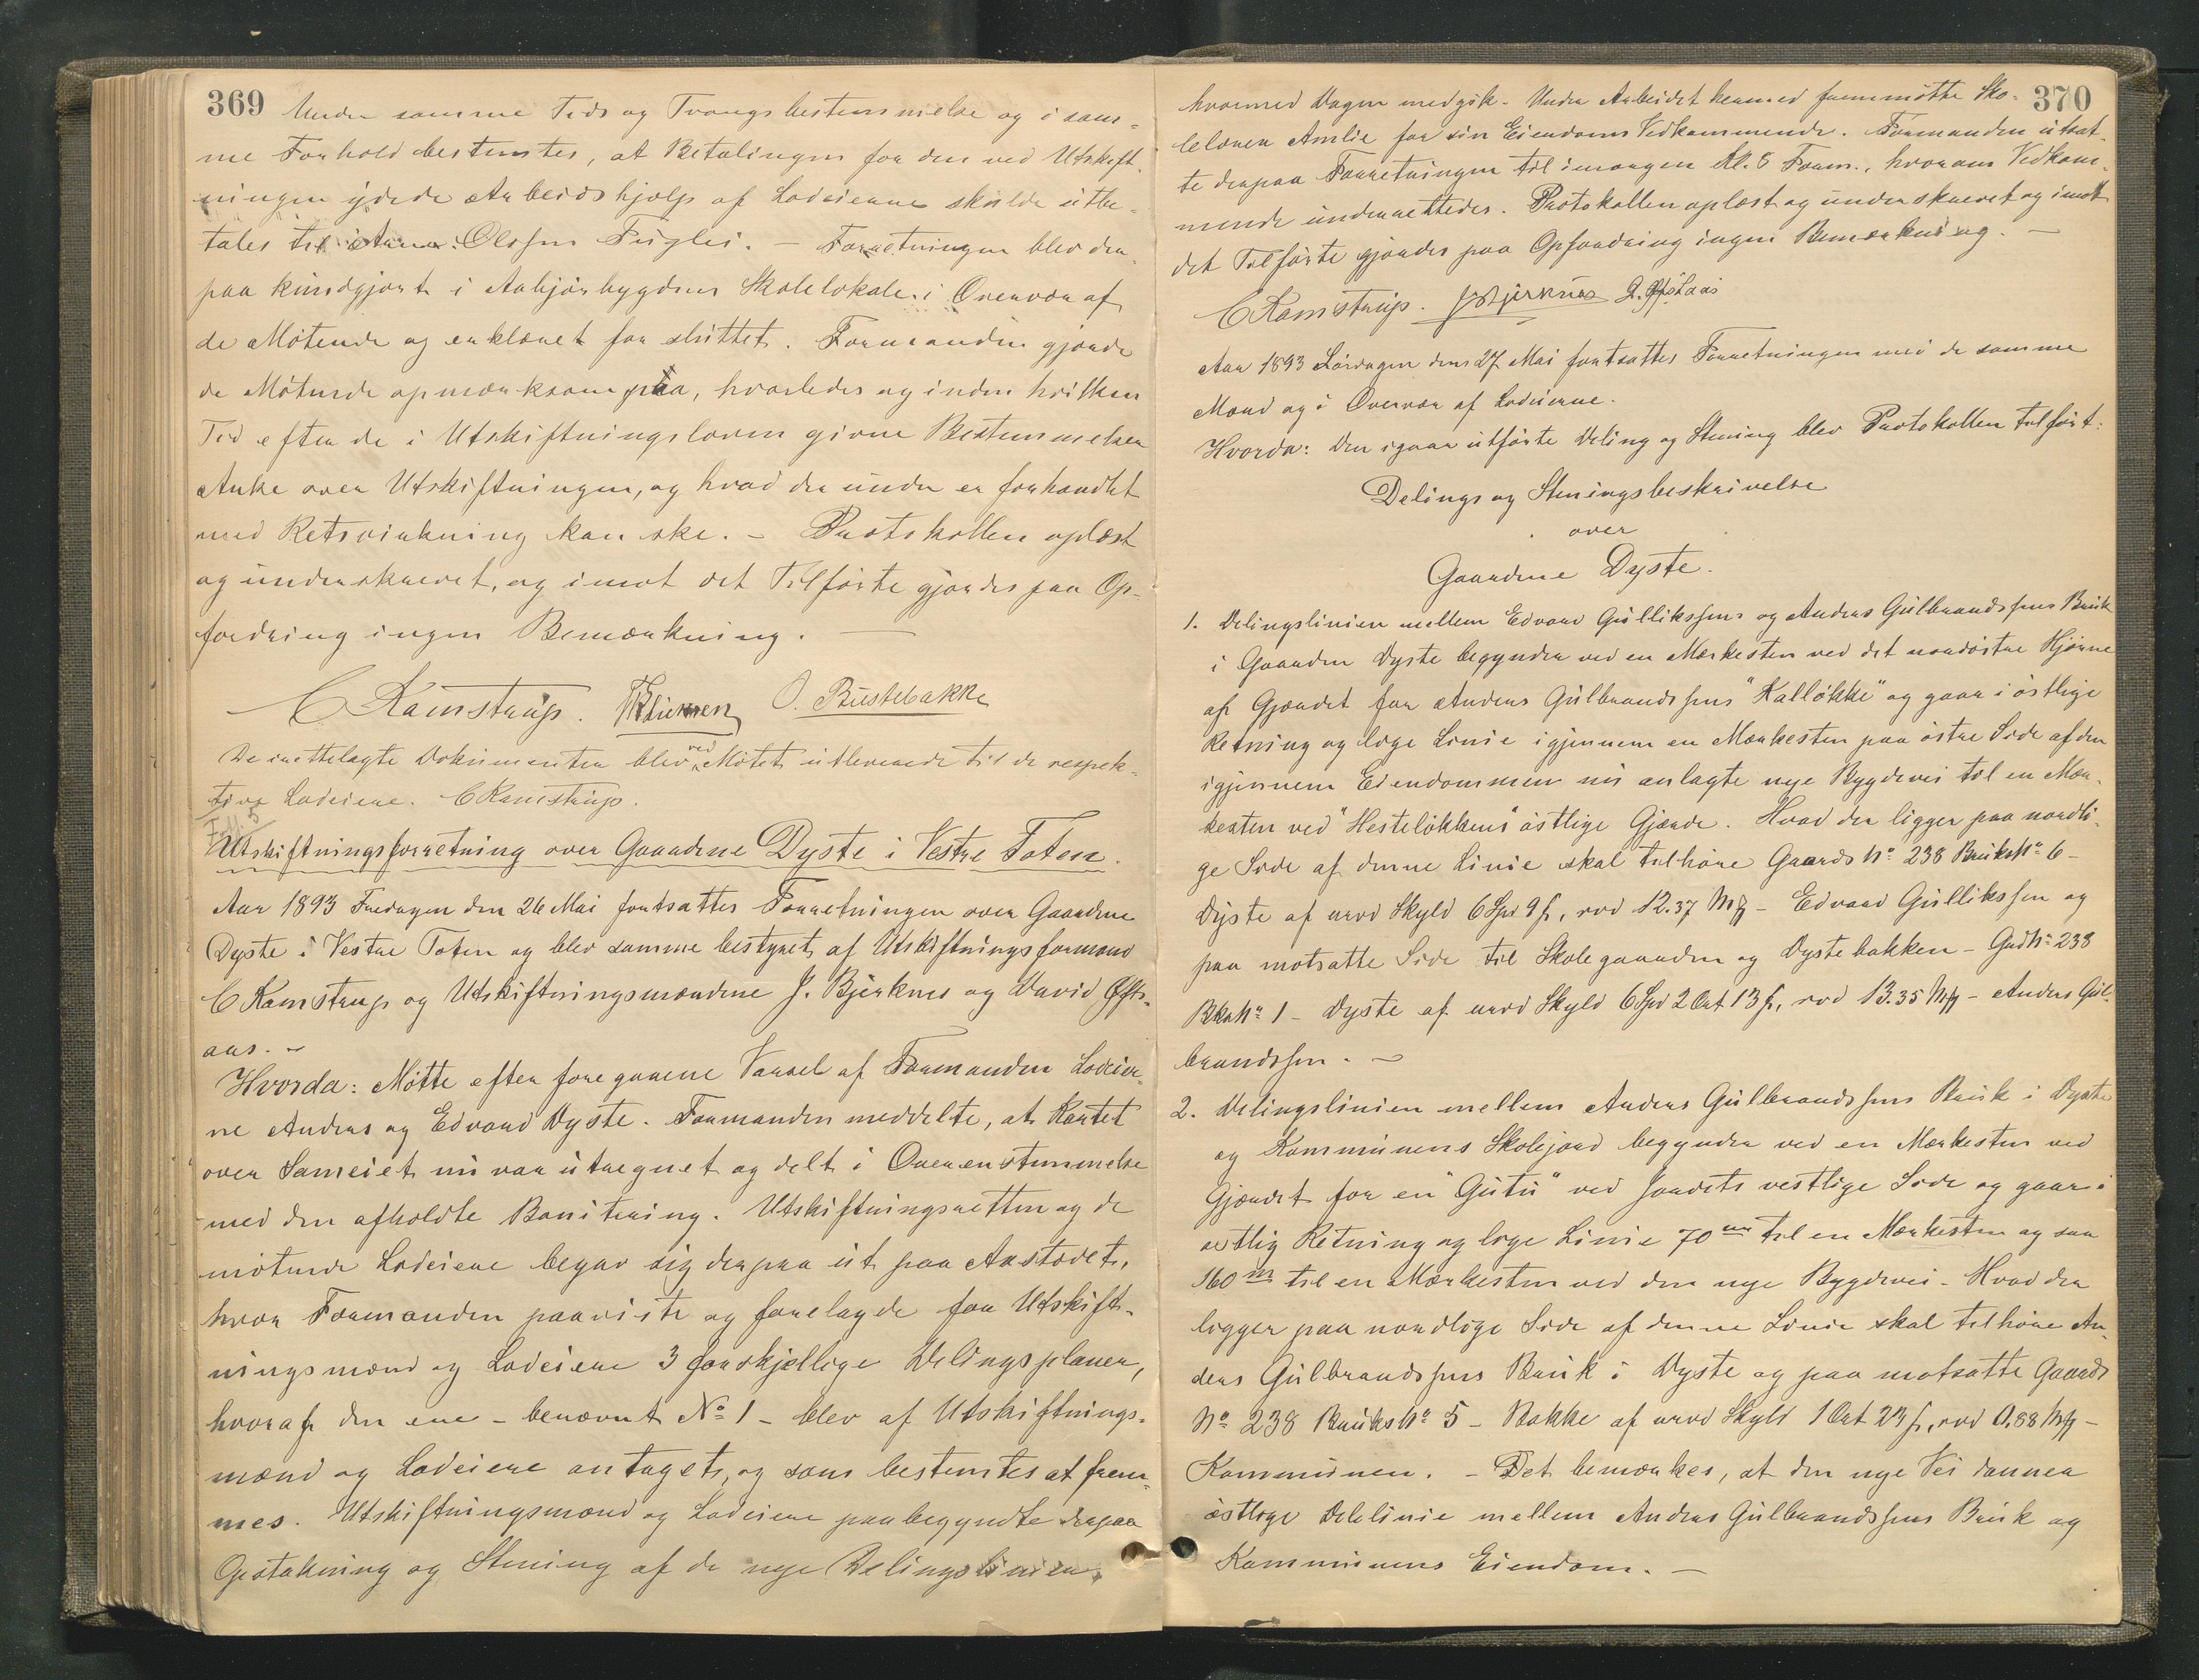 369
Under samme Tids og Tvangsbestemmelse og i sam-
me Forhold bestemtes, at Betalingen for den ved Utskift-
ningen ydede Arbeidshjælp af Lodeierne skulde utbe-
tales til Olsen Fuglei. – Forretningen blev der-
paa kundgjort i Aabjørbygdens Skolelokale i Overvær af
de Møtende og erklæret for sluttet. Formanden gjorde
de Møtende opmærksom paa, hvorledes og inden hvilken
Tid efter de i Utskiftningsloven givne Bestemmelser
Anke over Utskiftningen, og hvad derunder er forhandlet
med Retsvirkning kan ske. – Protokollen oplæst
og underskrevet, og imot det Tilførte gjordes paa Op-
fordring ingen Bemærkning. —
C Kamstrup. O. Bustebakke
De inættelagte Dokumenter blev ved Møtet utleverede til de respek-
tive Lodeiere. C Kamstrup.
Utskiftningsforretning over Gaardene Dyste i Vestre Toten.
Aar 1893 Fredagen den 26 Mai fortsattes Forretningen over Gaardene
Dyste i Vestre Toten og blev samme bestyret af Utskiftningsformand
C Kamstrup og Utskiftningsmændene J. Bjerknes og David Øfts-
aas. –
Hvorda: Møtte efter foregaaende Varsel af Formanden Lodeier-
ne Anders og Edvard Dyste. Formanden meddelte, at Kartet
over Sameiet nu var utregnet og delt i Overenstemmelse
med den afholdte Bonitering. Utskiftningsretten og de
møtende Lodeiere begav sig derpaa ut paa Aastedet,
hvor Formanden paaviste og forelagde for Utskift-
ningsmænd og Lodeiere 3 forskjellige Delingsplaner,
hvoraf den ene – benævnt No 1 – blev af Utskiftnings-
mænd og Lodeiere antaget, og som bestemtes at frem-
mes. Utskiftningsmænd og Lodeiere paabegyndte derpaa
Opstakning og Stening af de nye Delingslinier,
370
hvormed Dagen medgik. Under Arbeidet hermed fremmøtte Sko-
lelærer Amlie for sin Eiendoms Vedkommende. Formanden utsat-
te derpaa Forretningen til imorgen Kl. 8 Form., hvorom Vedkom-
mende underrettedes. Protokollen oplæst og underskrevet og imot
det Tilførte gjordes paa Opfordring ingen Bemærkning. —
C Kamstrup. J Bjerknes D. Øfstaas
Aar 1893 Lørdagen den 27 Mai fortsattes Forretningen med de samme
Mænd og i Overvær af Lodeierne.
Hvorda: Den igaar utførte Deling og Stening blev Protokollen tilført:
Delings og Steningsbeskrivelse
over
Gaardene Dyste.
1. Delingslinien mellem Edvard Gulliksens og Anders Gulbrandsens Bruk
i Gaarden Dyste begynder ved en Merkesten ved det nordøstre Hjørne
af Gjærdet for Anders Gulbrandsens "Kalløkke" og gaar i østlige
Retning og lige Linie igjennem en Mærkesten paa østre Side af den
igjennem Eiendommen nu anlagte nye Bygdevei til en Mær-
kesten ved "Hesteløkkens" østlige Gjærde. Hvad der ligger paa nordli-
ge Side af denne Linie skal tilhøre Gaards No 238 Bruks No 6 –
Dyste af urvd Skyld 6 Spd 9 ß, rvd 12.37 Mk – Edvard Gulliksen og
paa motsatte Side til Skolegaarden og Dystebakken – Grd No 238
Bks No 1 – Dyste af urvd Skyld 6 Spd 2 Ort 13 ß, rvd 13.35 Mk – Anders Gul-
brandsen. –
2. Delingslinien mellem Anders Gulbrandsens Bruk i Dyste
og Kommunens Skolejord begynder ved en Mærkesten ved
Gjærdet for en "Gutu" ved Jordets vestlige Side og gaar i
østlig Retning og lige Linie 70 m til en Mærkesten og saa
160 m til en Mærkesten ved den nye Bygdevei. Hvad der
ligger paa nordlige Side af denne Linie skal tilhøre An-
ders Gulbrandsens Bruk i Dyste og paa motsatte Gaards
No 238 Bruks No 5 – Bakke af urvd Skyld 1 Ort 23 ß, rvd 0,88 Mk –
Kommunen. – Det bemærkes, at den nye Vei danner
østlige Delelinie mellem Anders Gulbrandsens Bruk og
Kommunens Eiendom. —